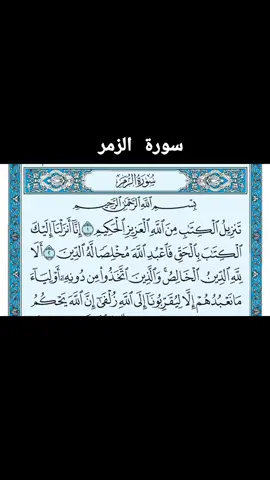 سورة الزمر
سُورَةُ الزُّمَرِ
بِسْمِ اللَّهِ الرَّحْمَٰنِ الرَّحِيمِ
تَنزِيلُ الْكِتَٰبِ مِنَ اللَّهِ الْعَزِيزِ الْحَكِيمِ ١ إِنَّا أَنزَلْنَا إِلَيْكَ
الْكِتَٰبَ بِالْحَقِّ فَاعْبُدِ اللَّهَ مُخْلِصًا لَّهُ الدِّينَ ٢ أَلَا
لِلَّهِ الدِّينُ الْخَالِصُ وَالَّذِينَ اتَّخَذُوا مِن دُونِهِ أَوْلِيَاءَ
مَا نَعْبُدُهُمْ إِلَّا لِيُقَرِّبُونَا إِلَى اللَّهِ زُلْفَىٰ إِنَّ اللَّهَ يَحْكُمُ